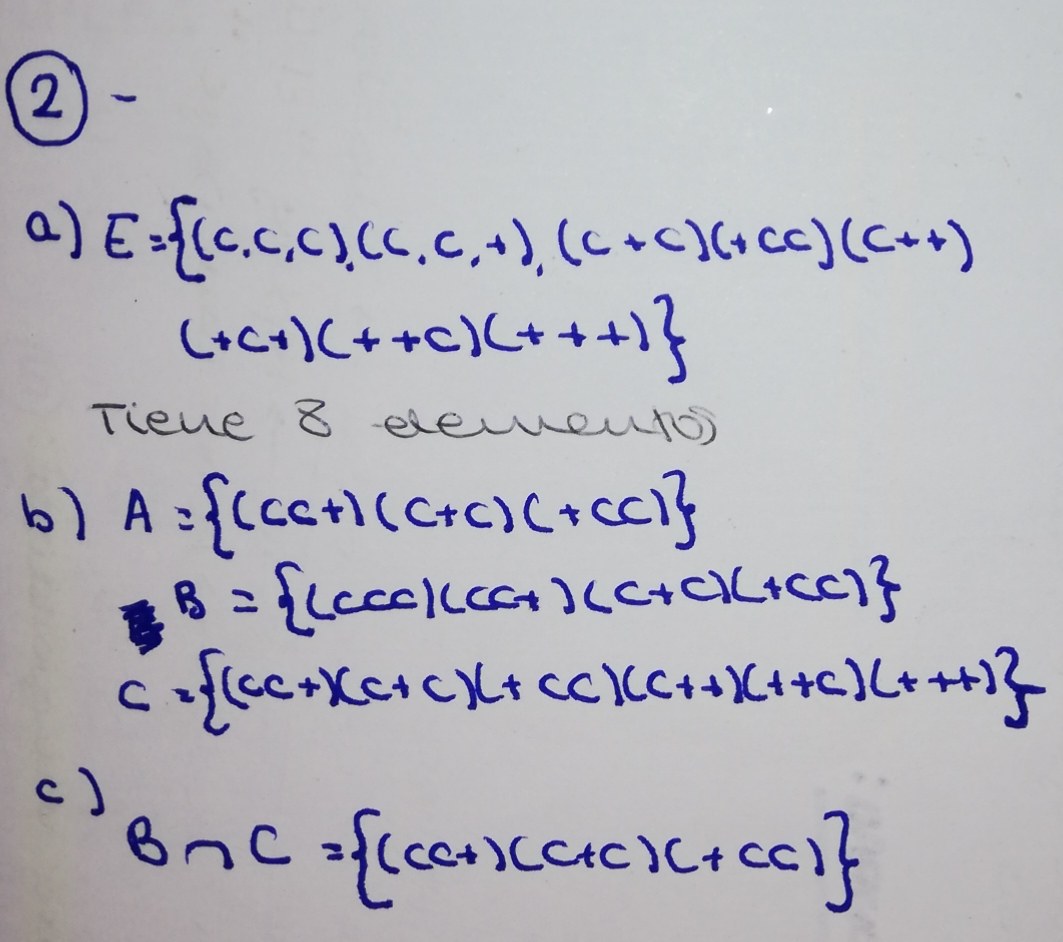 2 -
a) E={(C,C,C),(C,C,+),(C+C)(+CC)(C++)
(+C+)(++C)(+++)}
Tiene 8 elementos
b) A={(CC+)(C+C)(+CC)}
B={(CCC)(CC+)(C+C)(+CC)}
C={(CC+)(C+C)(+CC)(C++)(++C)(+++)}
c)
B∩C={(CC+)(C+C)(+CC)}